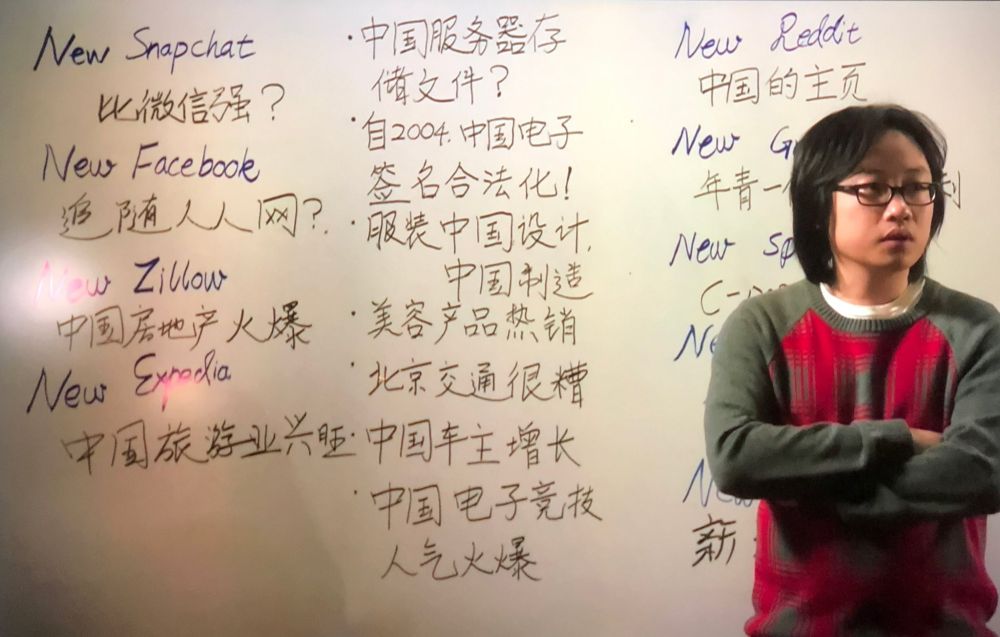 New Snapchat
比微信强？
New Facebook
追随人人网？
New Zillow
中国房地产火爆
New Expedia
中国旅游业兴旺
·中国服务器存
储文件？
·自2004.中国电子
签名合法化！
·服装中国设计.
中国制造
·美容产品热销
·北京交通很糟
·中国车主增长
·中国电子竞技
人气火爆
New Reddit
中国的主页
New
年青一
New
新